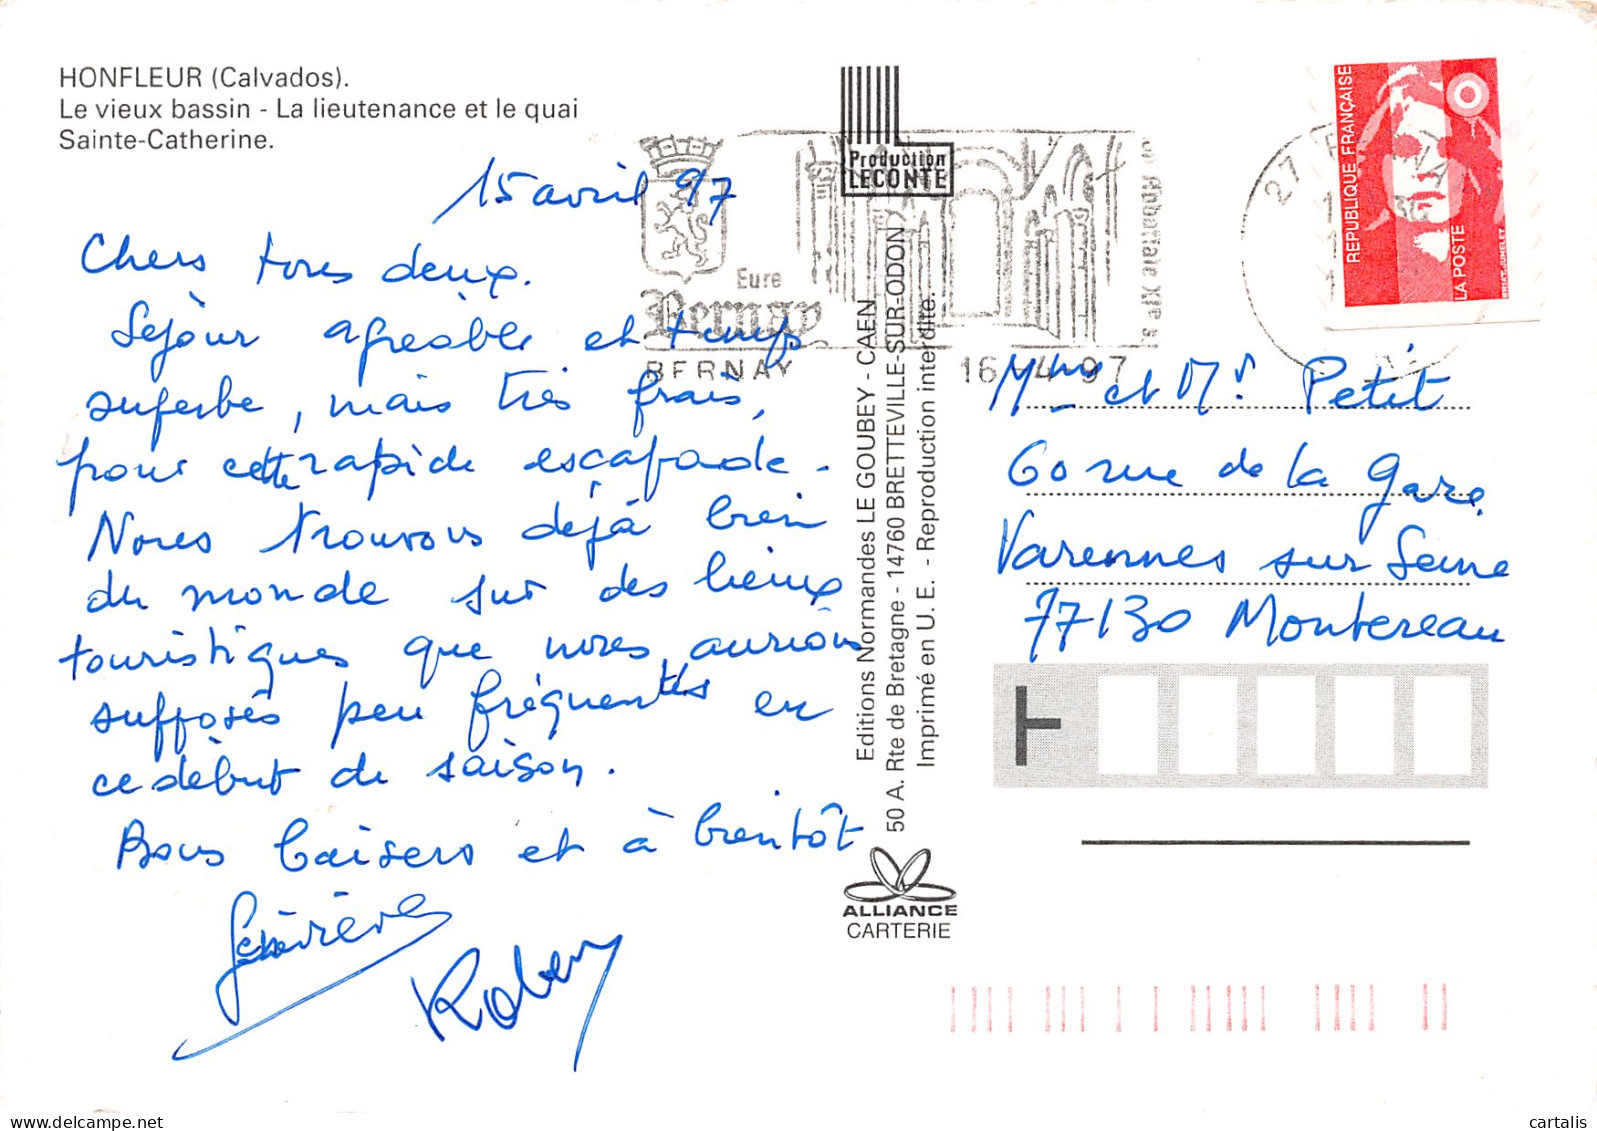 HONFLEUR (Calvados).
Le vieux bassin - La lieutenance et le quai
Sainte-Catherine.
15 avril 97
Chers tous deux.
Séjour agréable et temps
superbe, mais très frais,
pour cette rapide escapade.
Nous trouvons déjà bien
du monde sur des lieux
touristiques que nous aurions
supposés peu fréquentés en
ce début de saison.
Bons baisers et à bientôt
Geneviève
Robert
Production
LECONTE
Editions Normandes LE GOUBEY - CAEN
50 A. Rte de Bretagne - 14760 BRETTEVILLE-SUR-ODON
Imprimé en U. E. - Reproduction interdite.
ALLIANCE
CARTERIE
Eure
Bernay
BERNAY
Abbatiale XIe s.
16-4-97
27
REPUBLIQUE FRANÇAISE
LA POSTE
Mme et Mr Petit
60 rue de la gare
Varennes sur Seine
77130 Montereau
cartalis